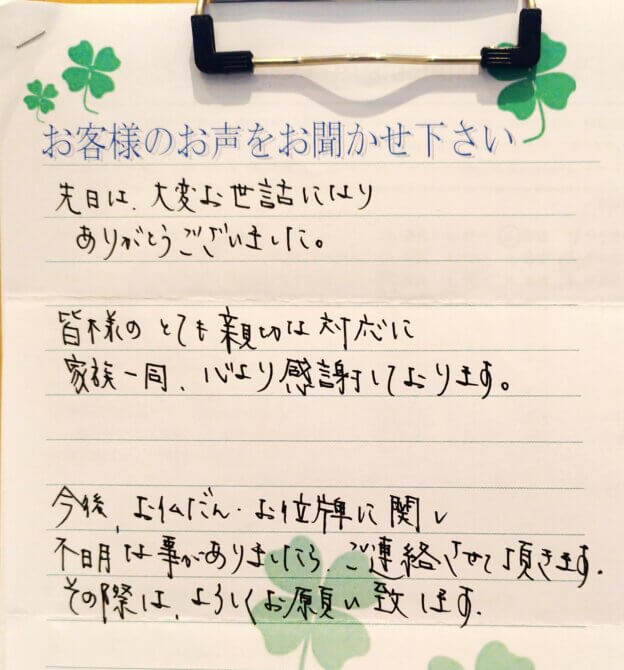 お客様のお声をお聞かせ下さい
先日は、大変お世話になり
ありがとうございました。
皆様のとても親切な対応に
家族一同、心より感謝しております。
今後、お仏だん・お位牌に関し
不明な事がありましたら、ご連絡させて頂きます。
その際は、よろしくお願い致します。